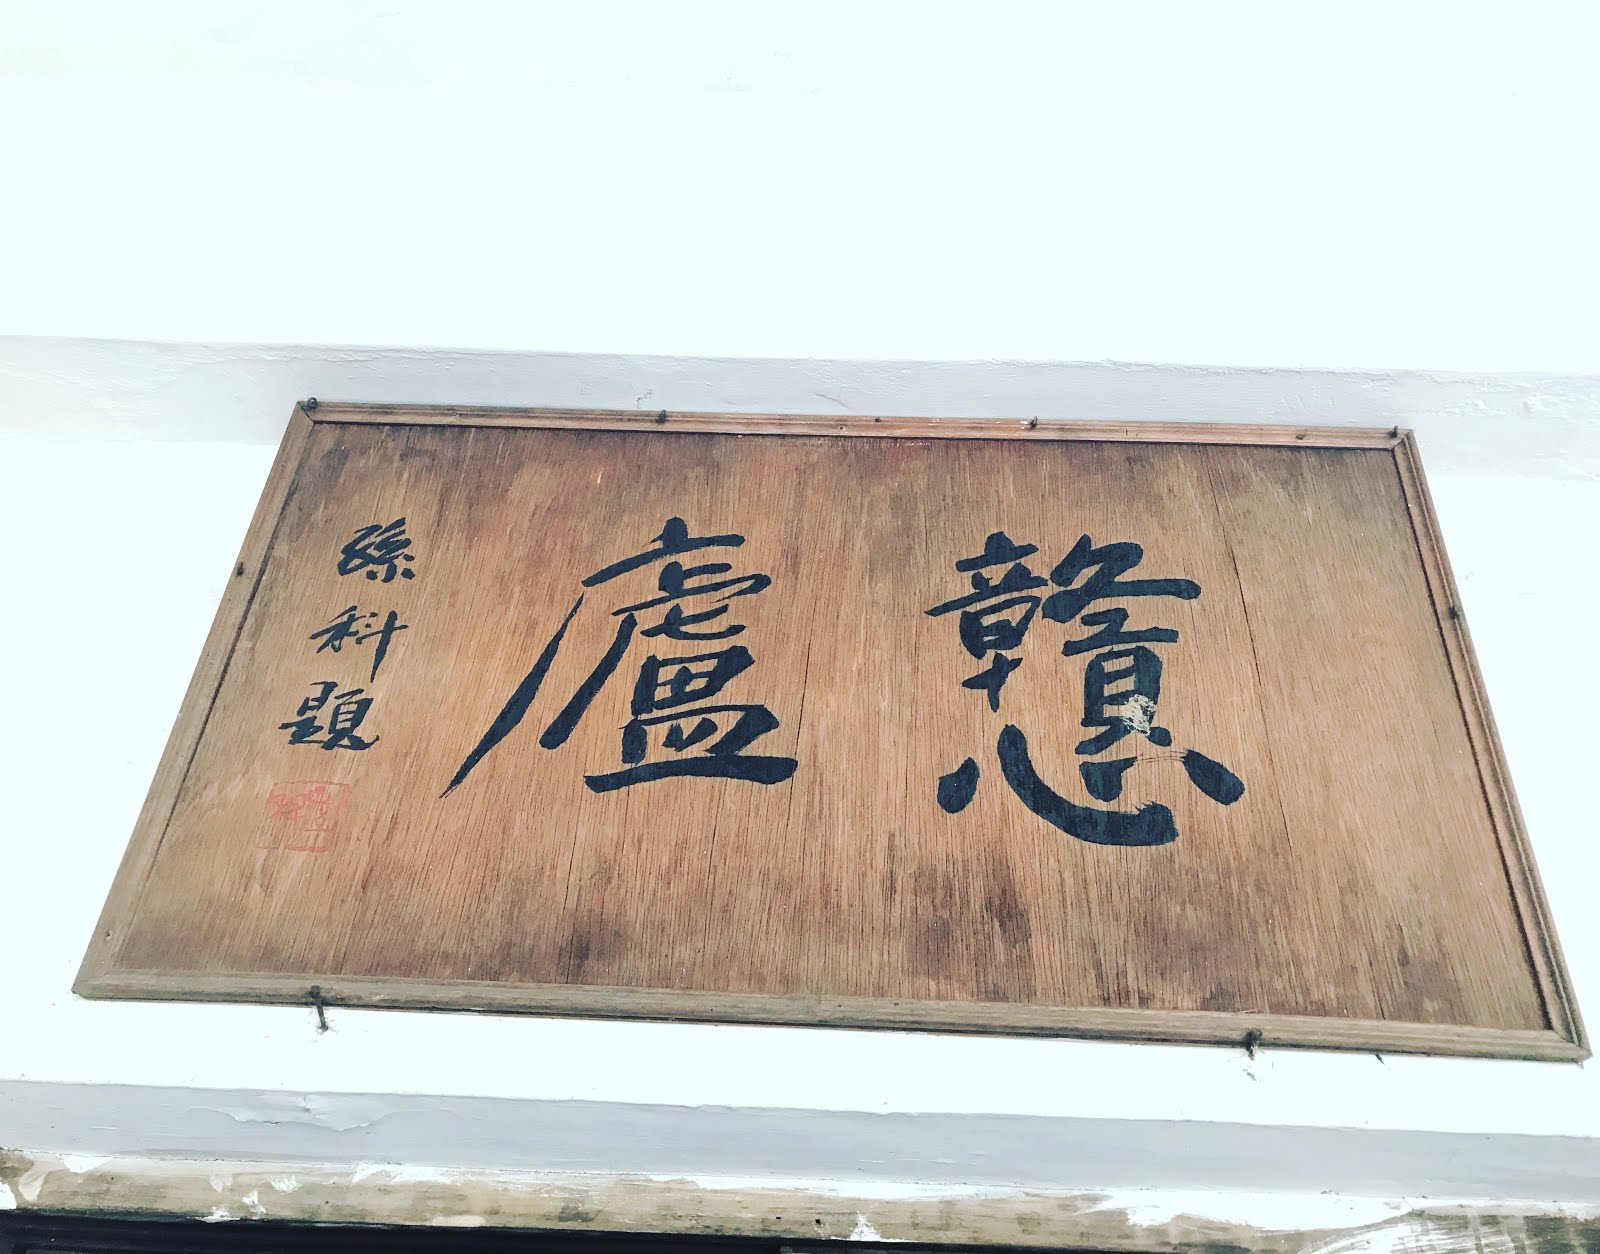 戇廬
孫科題